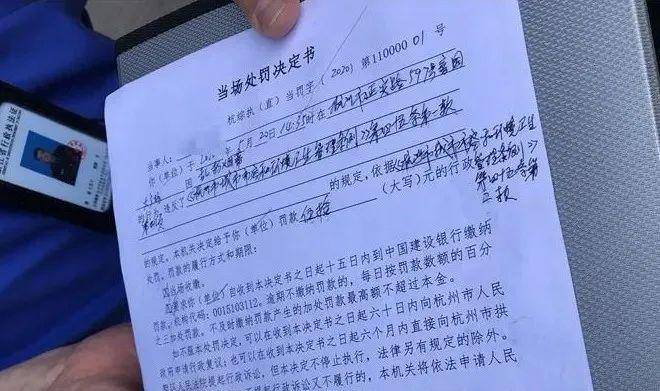 当场处罚决定书
杭综执（直）当罚字（2020）第11000001号
当事人：
你（单位）于2020年 月20日14时35时在杭州市延安路597号家园
因乱扔烟蒂
的行为违反了《杭州市城市市容和环境卫生管理条例》第四 条第 款
的规定，依据《杭州市城市市容和环境卫生
管理条例》
第四 条第
二款
的规定。本机关决定给予你（单位）罚款伍拾（大写）元的行政
处罚。罚款的履行方式和期限：
当场收缴。
要求你（单位）自收到本决定书之日起十五日内到中国建设银行缴纳
罚款。机构代码：0015103112。逾期不缴纳罚款的，每日按罚款数额的百分
之三加处罚款。不及时缴纳罚款产生的加处罚款最高额不超过本金。
如不服本处罚决定，可以在收到本决定书之日起六十日内向杭州市人民
政府申请行政复议；也可以在收到本决定书之日起六个月内直接向杭州市拱
墅区人民法院提起行政诉讼，但本决定不停止执行，法律另有规定的除外。
提起行政诉讼又不履行的，本机关将依法申请人民
江省行政执法证